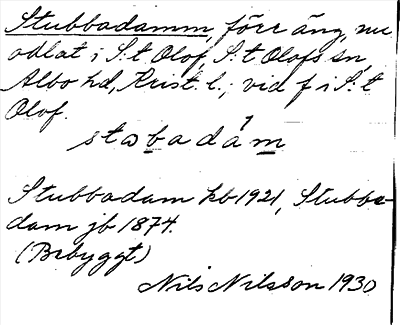 Stubbadamm, förr äng, nu
odlat i S:t Olof, S:t Olofs sn,
Albo hd, Krist. l.; vid f i S:t
Olof.
stabadám
Stubbadam kb 1921, Stubba-
dam jb 1874.
(Bebyggt)
Nils Nilsson 1930